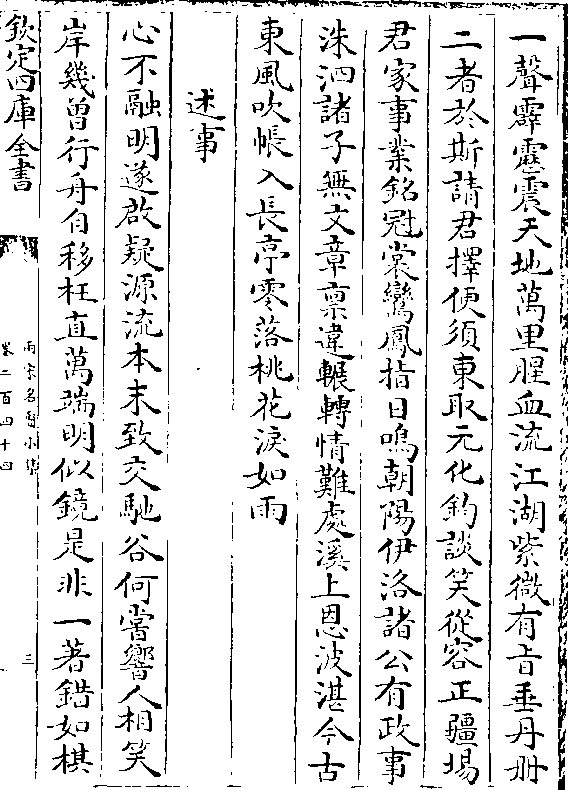 一聲霹靂震天地萬里腥血流江湖紫微有旨垂丹冊
二者於斯請君擇便須東取元化鈞談笑從容正疆埸
君家事業銘冠裳鸞鳳指日鳴朝陽伊洛諸公有政事
洙泗諸子無文章禀違輾轉情難處溪上恩波湛今古
東風吹帳入長亭零落桃花淚如雨
述事
心不融明遂啟疑源流本末致交馳谷何嘗響人相笑
岸幾曾行舟自移枉直萬端明似鏡是非一著錯如棋
欽定四庫全書
兩宋名賢小集
卷二百四十四
三